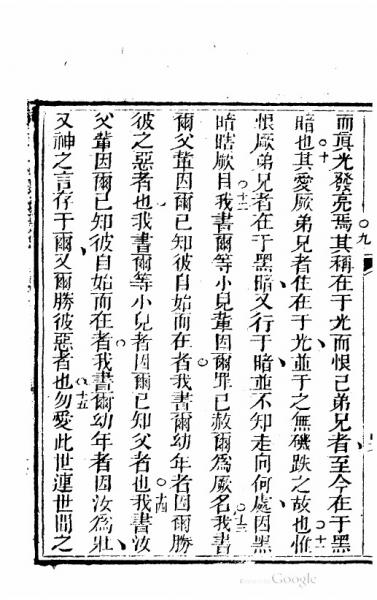 而真光發亮焉其稱在于光而恨己弟兄者至今在于黑
暗也其愛厥弟兄者住在于光並于之無礙跌之故也惟
恨厥弟兄者在于黑暗又行于暗並不知走向何處因黑
暗瞎厥目我書爾等小兒輩因爾罪已赦爾爲厥名我書
爾父輩因爾已知彼自始而在者我書爾幼年者因爾勝
彼之惡者也我書爾等小兒者因爾已知父者也我書汝
父輩因爾已知彼自始而在者我書爾幼年者因汝爲壯
又神之言存于爾又爾勝彼惡者也勿愛此世連世間之
○九
○十
○十一
○十二
○十三
○十四
○十五
Google